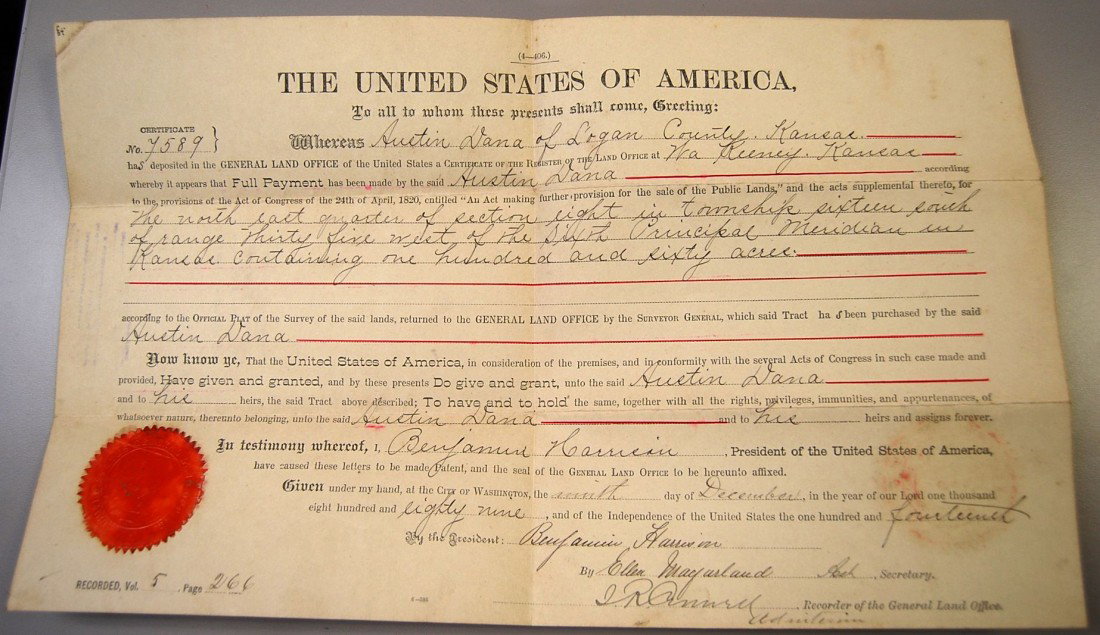 (4—406.)
THE UNITED STATES OF AMERICA,
To all to whom these presents shall come, Greeting:
CERTIFICATE
No. 7589 } Whereas Austin Dana of Logan County Kansas
has deposited in the GENERAL LAND OFFICE of the United States a CERTIFICATE OF THE REGISTER OF THE LAND OFFICE AT Wa Keeney, Kansas
whereby it appears that Full Payment has been made by the said Austin Dana according
to the provisions of the Act of Congress of the 24th of April, 1820, entitled "An Act making further provision for the sale of the Public Lands," and the acts supplemental thereto, for
the north east quarter of section eight in township sixteen south
of range thirty five west of the Sixth Principal Meridian in
Kansas containing one hundred and sixty acres.
according to the OFFICIAL PLAT of the Survey of the said lands, returned to the GENERAL LAND OFFICE by the SURVEYOR GENERAL, which said Tract has been purchased by the said
Austin Dana
Now know ye, That the United States of America, in consideration of the premises, and in conformity with the several Acts of Congress in such case made and
provided, Have given and granted, and by these presents Do give and grant, unto the said Austin Dana
and to his heirs, the said Tract above described; To have and to hold the same, together with all the rights, privileges, immunities, and appurtenances, of
whatsoever nature, thereunto belonging, unto the said Austin Dana and to his heirs and assigns forever.
In testimony whereof, I, Benjamin Harrison, President of the United States of America,
have caused these letters to be made Patent, and the seal of the GENERAL LAND OFFICE to be hereunto affixed.
Given under my hand, at the CITY OF WASHINGTON, the ninth day of December, in the year of our Lord one thousand
eight hundred and eighty nine, and of the Independence of the United States the one hundred and fourteenth
By the President: Benjamin Harrison
By Ellen Macfarland Asst, Secretary.
RECORDED, Vol. 5, Page 266
Recorder of the General Land Office.
Ad interim